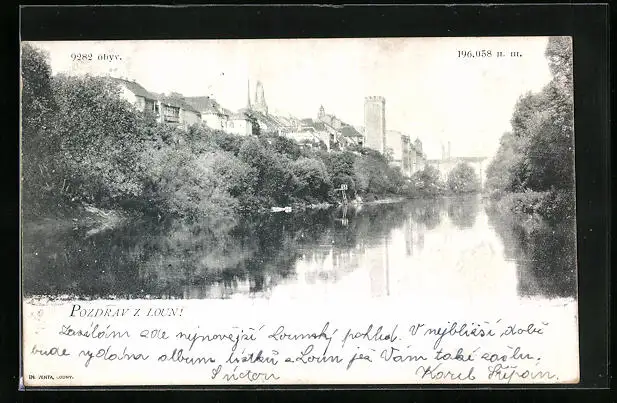 9282 obyv.
196.058 n. m.
POZDRAV Z LOUN!
Zasílám zde nejnovější Lounský pohled. V nejbližší době
bude vydáno album lístků z Loun jež Vám také zašlu.
Karel Štěpán.
VENTA, LOUNY.